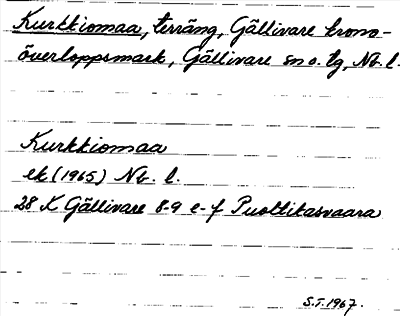 Kurkkiomaa, terräng, Gällivare krono-
överloppsmark, Gällivare sn o. tg, Nb. l.
Kurkkiomaa
ek (1965) Nb. l.
28 K Gällivare 8-9 e-f Puoltikasvaara
S.T. 1967.